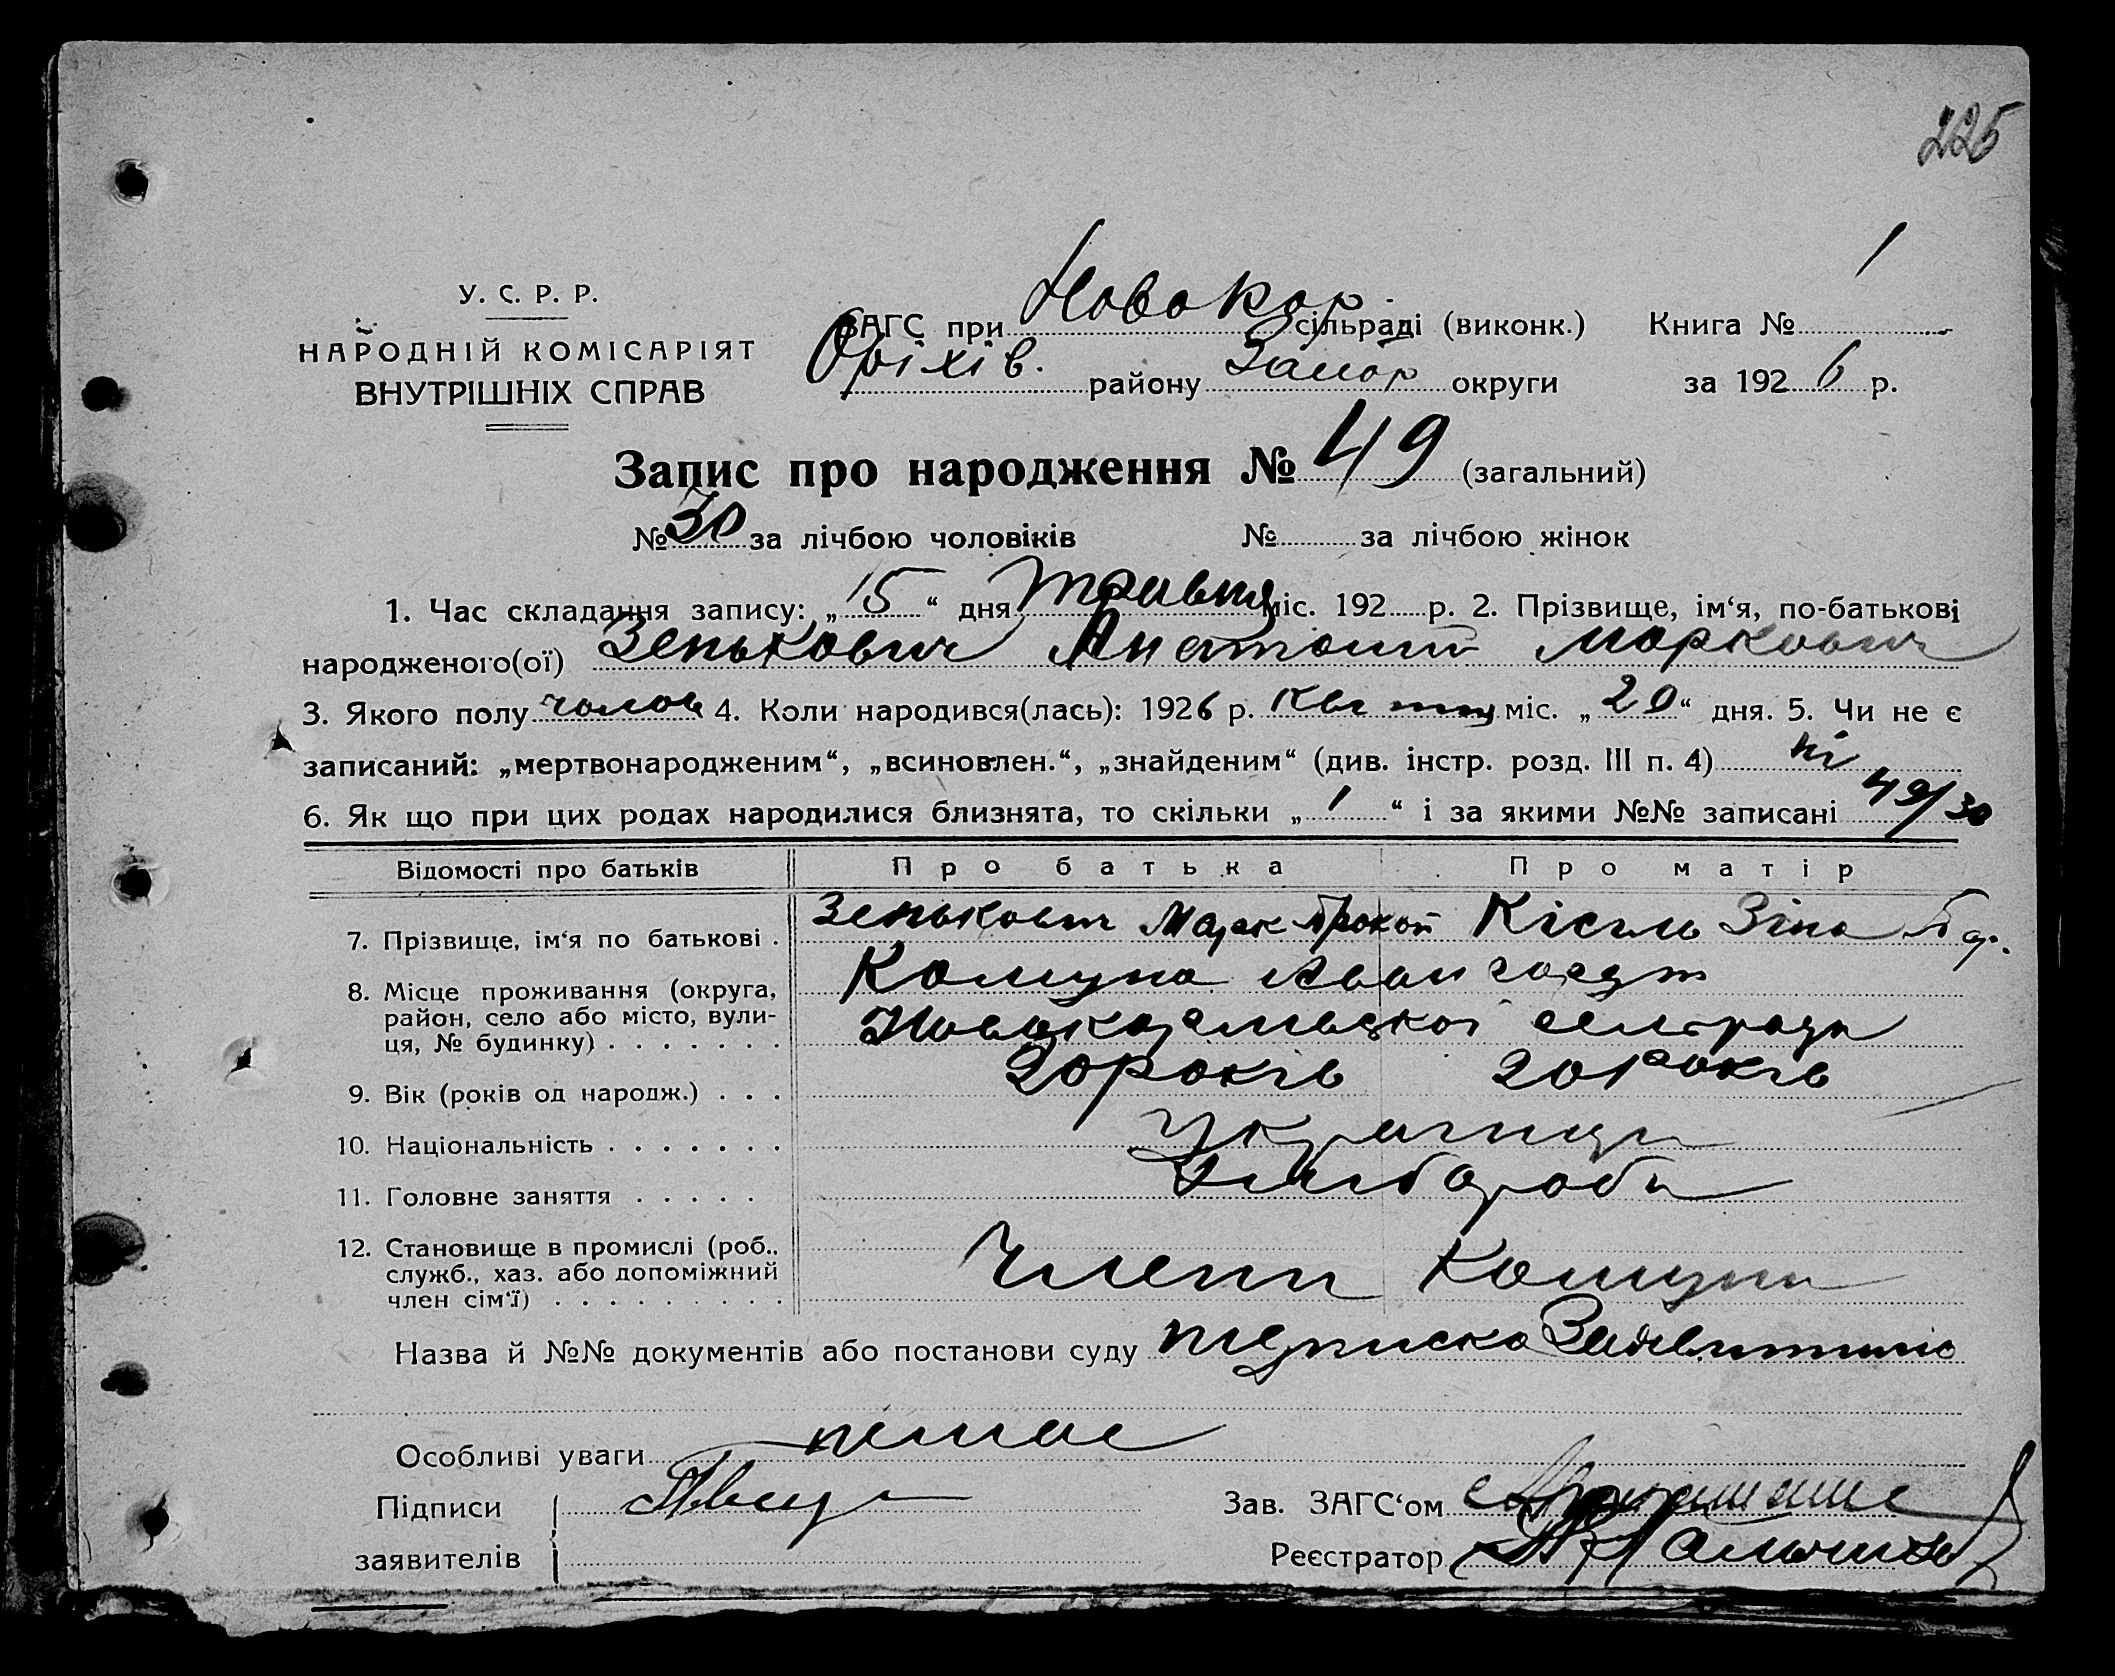 225
У. С. Р. Р.
НАРОДНІЙ КОМІСАРІЯТ
ВНУТРІШНІХ СПРАВ
ЗАГС при Новокар. сільраді (виконк.) Книга № 1
Оріхів. району Запор округи за 1926 р.
Запис про народження № 49 (загальний)
№ 30 за лічбою чоловіків № за лічбою жінок
1. Час складання запису: „15“ дня травня міс. 192 р. 2. Прізвище, ім‘я, по-батькові
народженого(ої) Зенькович Анатолий Маркович
3. Якого полу чолов 4. Коли народився(лась): 1926 р. Квітня міс. „20“ дня. 5. Чи не є
записаний: „мертвонародженим“, „всиновлен.“, „знайденим“ (див. інстр. розд. III п. 4) ні
6. Як що при цих родах народилися близнята, то скільки „1“ і за якими №№ записані 49/30
Відомості про батьків Про батька Про матір
7. Прізвище, ім‘я по батькові . Зенькович Марк Прокоп Зіна
8. Місце проживання (округа, Комуна Авангард
район, село або місто, вули- Новокарльської сельради
ця, № будинку) . . . . . . .
9. Вік (років од народж.) . . . 20 років 20 років
10. Національність . . . . . . . Українци
11. Головне заняття . . . . . Хлібороби
12. Становище в промислі (роб.. 
служб., хаз. або допоміжний Члени Комуни
член сім‘ї) . . . . . . . . .
Назва й №№ документів або постанови суду
Особливі уваги немає
Підписи
Зав. ЗАГС‘ом
заявителів
Реєстратор